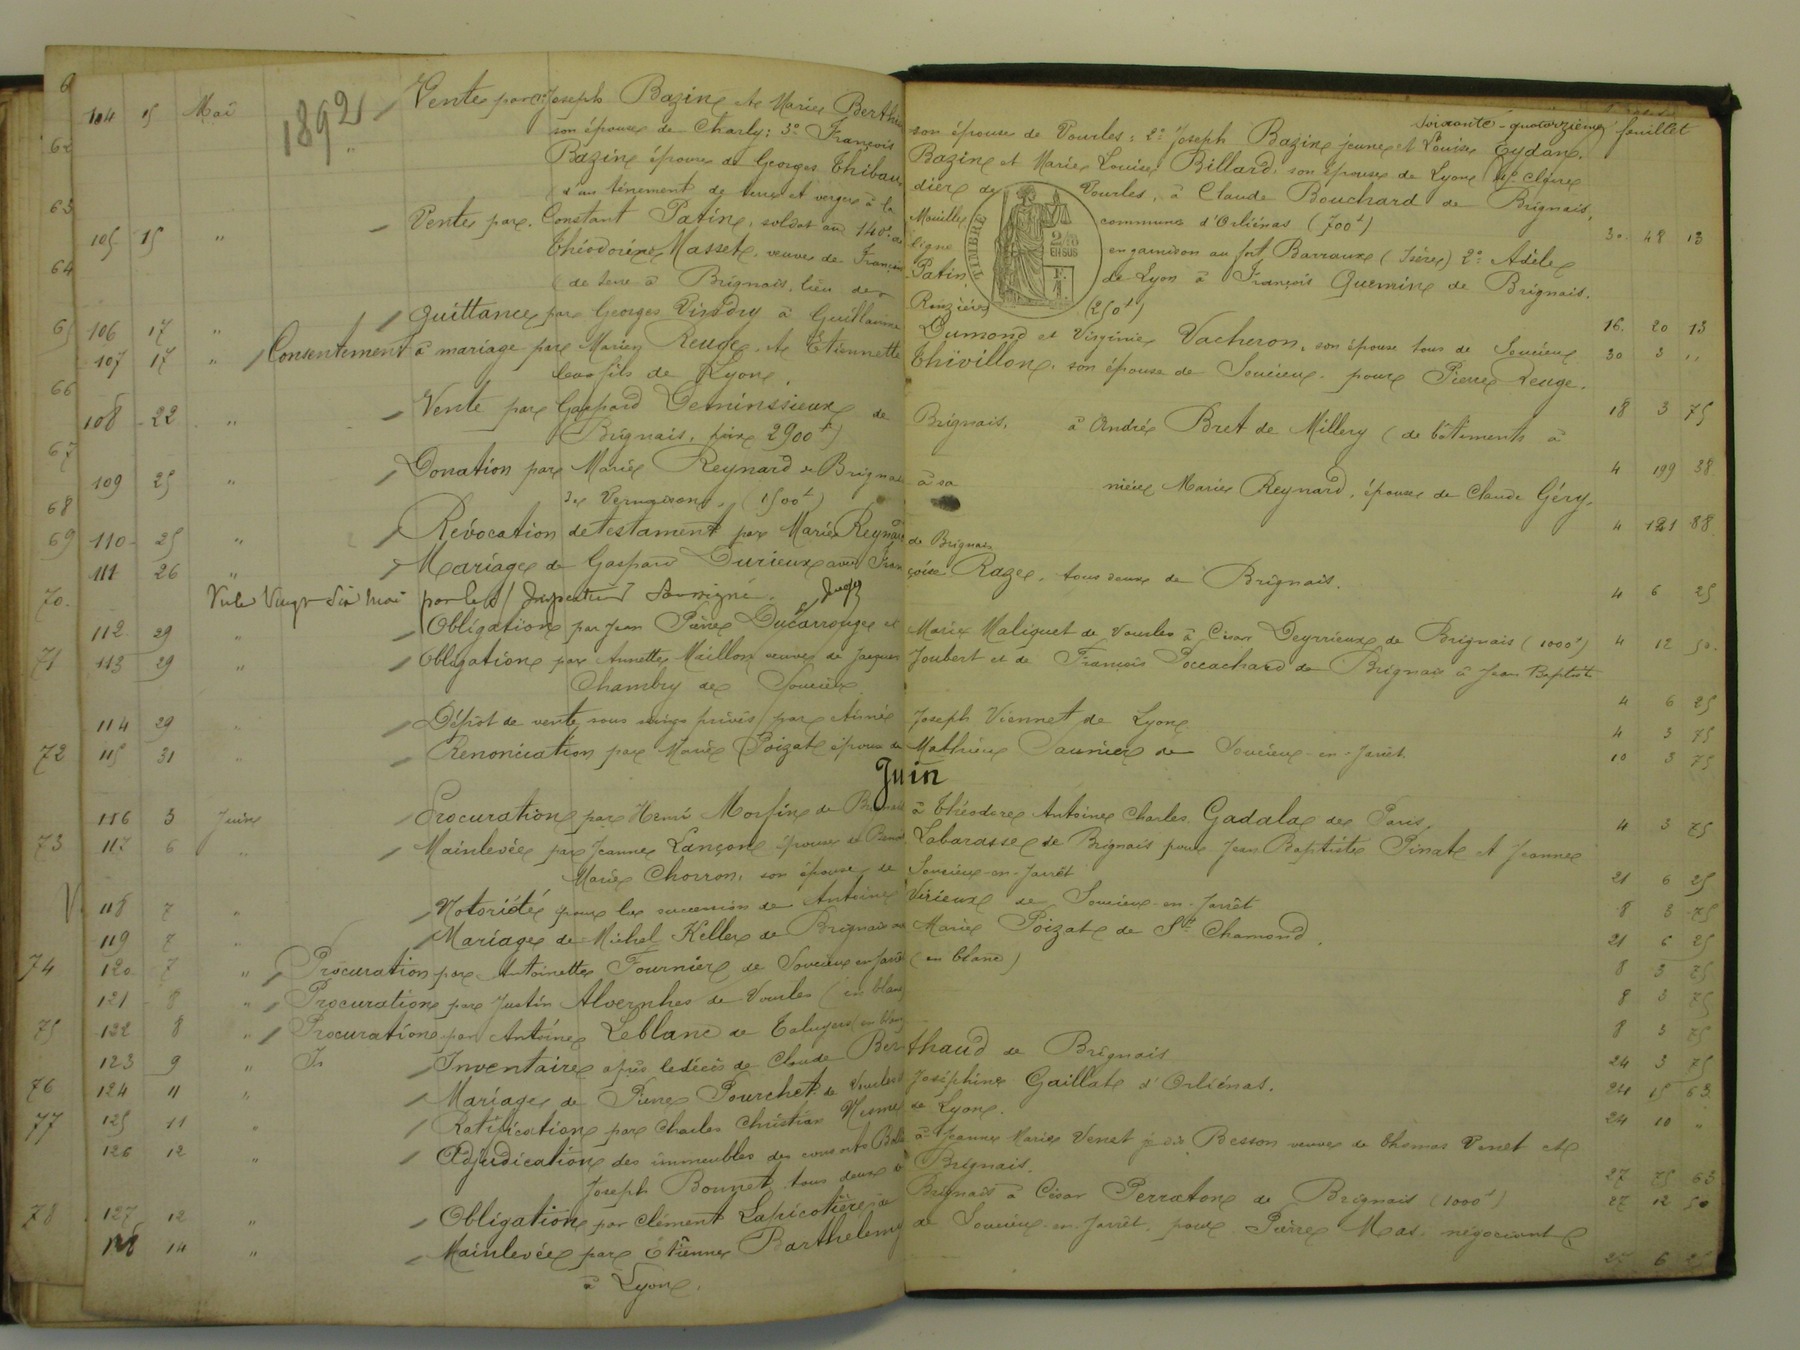 Soixante-quatorzième feuillet
1892
104 15 Mai Vente par 1º Joseph Bazin et Marie Berthe son épouse de Vourles: 2º Joseph Bazin jeune et Louise Eydan
son épouse de Charly: 3º François Bazin et Marie Louise Billard, son épouse de Lyon 4º Claire
Bazin épouse de Georges Thibaudier de Vourles, à Claude Bouchard de Brignais,
(d'un tènement de terre et verger à la Mouille commune d'Orliénas (700f) 30 48 13
TIMBRE
2/10 EN SUS
105 15 " Vente par Constant Patin, soldat au 140e de ligne en garnison au fort Barraux (Isère) 2º Adèle
Théodorine Masset, veuve de François Patin de Lyon à François Guemin de Brignais.
(de terre à Brignais, lieu des Ronzières (250f) 16 20 13
106 17 " Quittance par Georges Vindry à Guillaume Dumond et Virginie Vacheron, son épouse tous de Soucieu 30 3 "
107 17 " Consentement à mariage par Marien Reuge et Etiennette Thivillon, son épouse de Soucieu pour Pierre Reuge.
leur fils de Lyon. 18 3 75
108 22 " Vente par Gaspard Deminssieux de Brignais, à André Bret de Millery (de bâtiments à
Brignais, prix 2900f) 4 199 38
109 25 " Donation par Marie Reynard de Brignais à sa nièce Marie Reynard, épouse de Claude Géry,
(1500f) 4 121 88
110 25 " Révocation de testament par Marie Reynard de Brignais
111 26 " Mariage de Gaspard Durieux avec Françoise Raze, tous deux de Brignais. 4 6 25
Vu le Vingt Six Mai par le Inspecteur Soussigné.
112 29 " Obligation par Jean Pierre Ducarrouge et Marie Maliquet de Vourles à César Deyrrieux de Brignais (1000f) 4 12 50
113 29 " Obligation par Annette Maillon veuve de Jacques Joubert et de François Poccachard de Brignais à Jean Baptiste
Chambry de Soucieu 4 6 25
114 29 " Dépôt de vente sous seings privés par Aimé Joseph Viennet de Lyon 4 3 75
115 31 " Renonciation par Marie Poizat épouse de Mathieu Saunier de Soucieu-en-Jarret 10 3 75
Juin
116 3 Juin Procuration par Henri Morfin de Brignais à Théodore Antoine Charles Gadala de Paris 4 3 75
117 6 " Mainlevée par Jeanne Lançon épouse de Benoît Labarasse de Brignais pour Jean Baptiste Pinat et Jeanne
Marie Chorron, son épouse, de Soucieu-en-Jarrêt 21 6 25
118 7 " Notoriété pour la succession de Antoine Virieux de Soucieu-en-Jarrêt 8 3 75
119 7 " Mariage de Michel Keller de Brignais avec Marie Poizat de St Chamond. 21 6 25
120 7 " Procuration par Antoinette Fournier de Soucieu en Jarrêt (en blanc) 8 3 75
121 8 " Procuration par Justin Alvernhes de Vourles (en blanc) 8 3 75
122 8 " Procuration par Antoine Leblanc de Taluyers en blanc 8 3 75
123 9 " In Inventaire après le décès de Claude Berthaud de Brignais 24 3 75
124 11 " Mariage de Pierre Pourchet de Vourles Joséphine Gaillat d'Orliénas. 24 15 63
125 11 " Ratification par Charles Christian Mesmer de Lyon. 24 10 "
126 12 " Adjudication des immeubles des consorts à Jeanne Marie Venet Besson veuve de Thomas Venet et
Joseph Bonnet tous deux de Brignais. 27 75 63
127 12 " Obligation par Clément Lapicotière de Brignais à César Perraton de Brignais (1000f) 27 12 50
128 14 " Mainlevée par Etienne Barthelemy de Soucieu-en-Jarrêt, pour Pierre Mas, négociant
à Lyon. 27 6 25
6
62
63
64
65
66
67
68
69
70
71
72
73
V
74
75
76
77
78